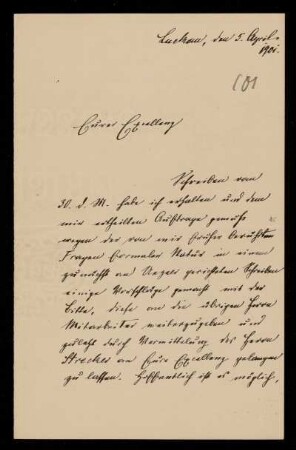 Luckau, den 5. April
1901.
101
Eurer Excellenz
Schreiben vom
30. d. M. habe ich erhalten und dem
mir ertheilten Auftrage gemäß
wegen der von mir früher berührten
Fragen formaler Natur in einem
zunächst an gerichteten Schreiben
einige Vorschläge gemacht mit der
Bitte, diese an die übrigen Herrn
Mitarbeiter weiterzugeben und
zuletzt durch Vermittelung des Herrn
an Eure Excellenz gelangen
zu lassen. Hoffentlich ist es möglich,